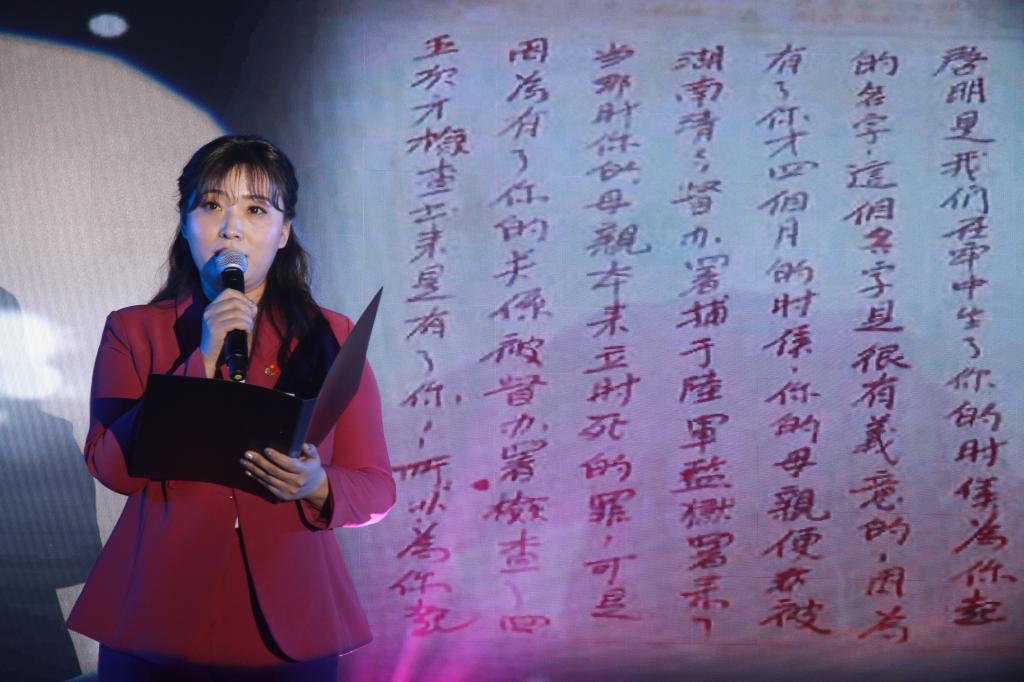 啓明是我们在牢中生了你的时候為你起
的名字這個名字是很有義意的,因為
有了你才四個月的时候,你的母親便被
湖南清乡督办署捕于陸軍監獄署来了
当那时你的母親本来立时死的罪,可是
因為有了你的关係被督办署檢查了四
五次才檢查出来是有了你!所以為你起